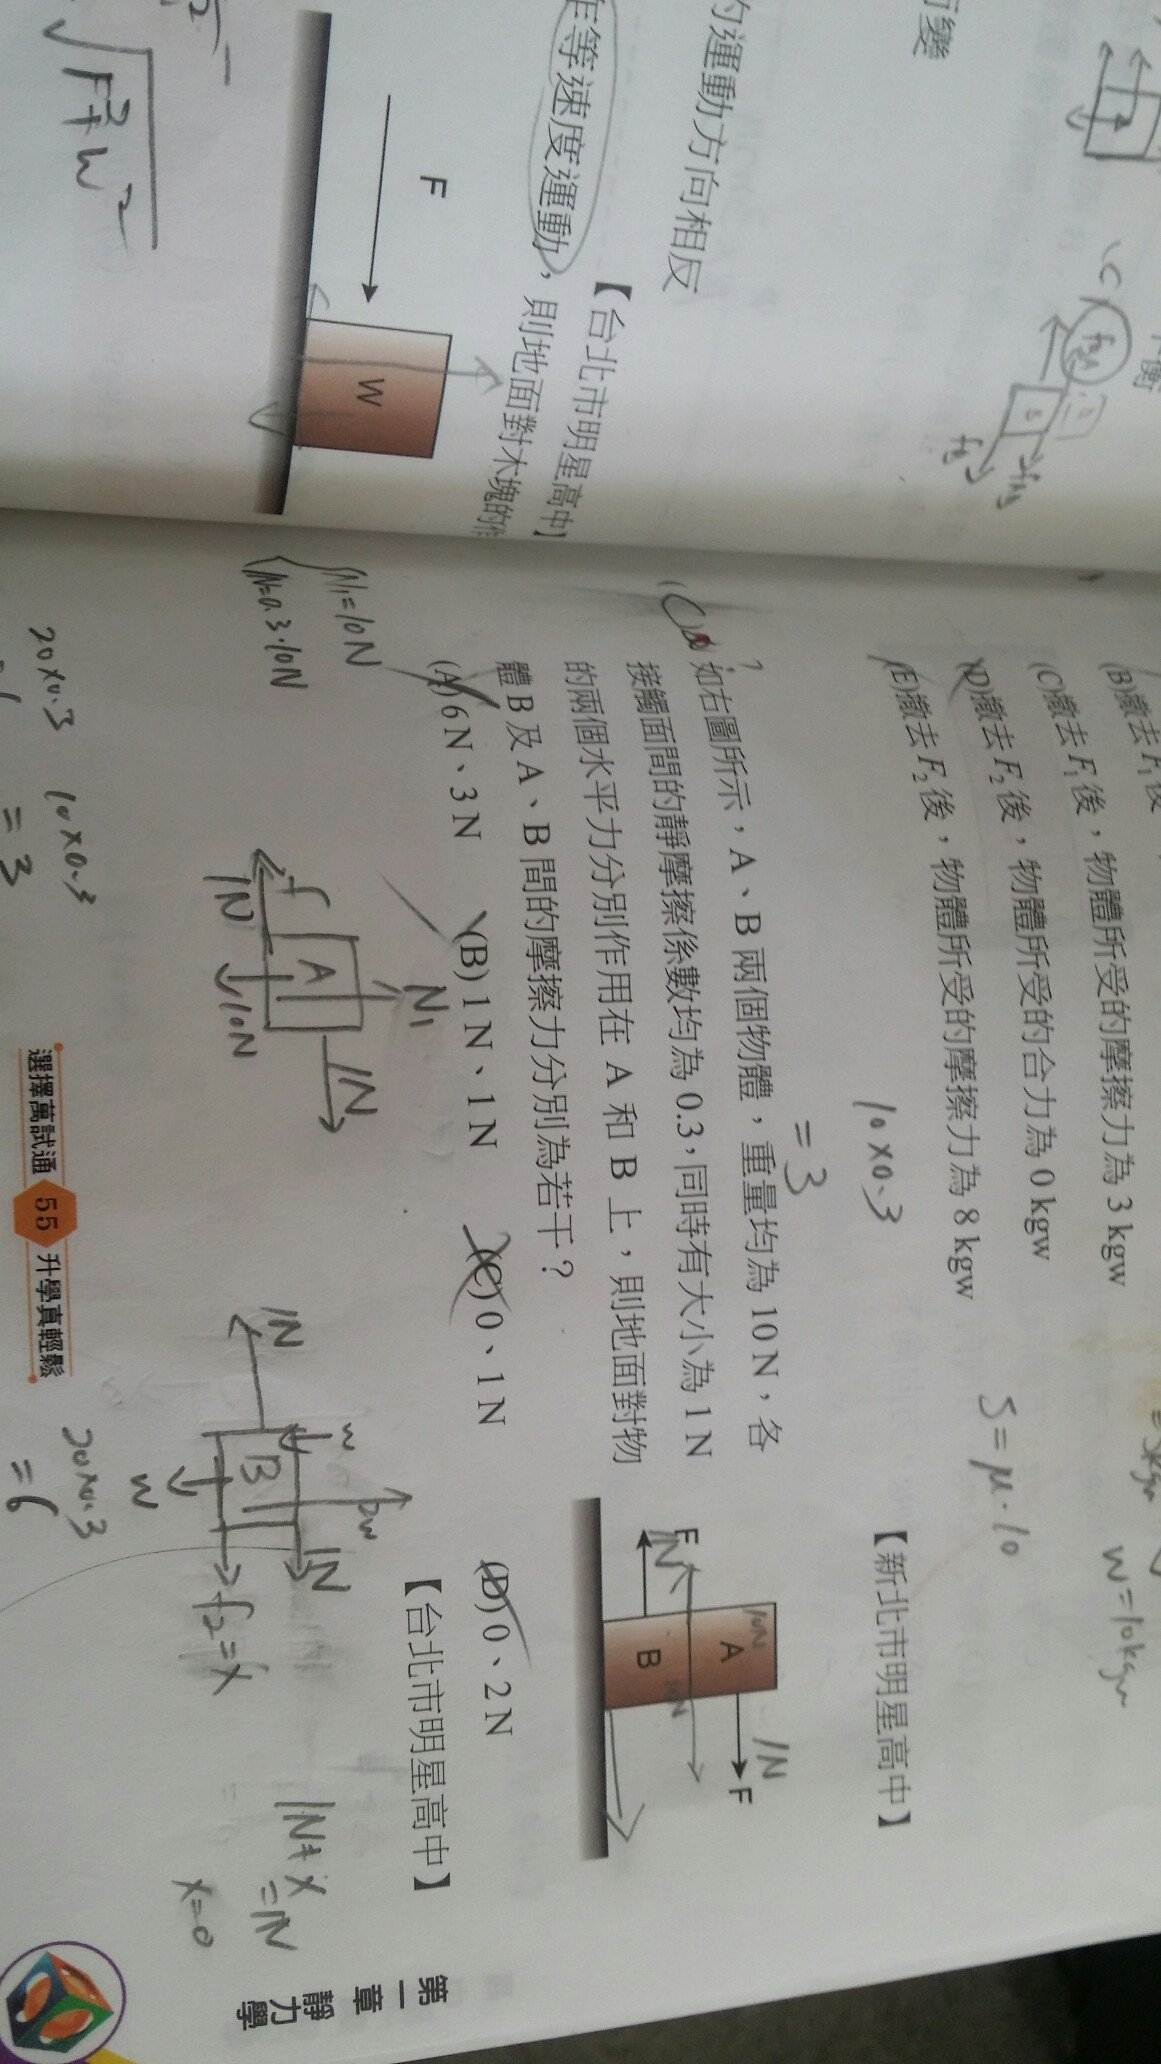 可變
的運動方向相反
【台北市明星高中】
作等速度運動，則地面對木塊的作
F
W
√F²+W²
(B)撤去F₁後，物體所受的摩擦力為 3 kgw
(C)撤去F₁後，物體所受的合力為 0 kgw
(D)撤去F₂後，物體所受的摩擦力為 8 kgw
(E)撤去F₂後，
【新北市明星高中】
S=μ·10
W=10kgw
10×0.3
=3
(C)
如右圖所示，A、B 兩個物體，重量均為 10 N，各
接觸面間的靜摩擦係數均為 0.3，同時有大小為 1 N
的兩個水平力分別作用在 A 和 B 上，則地面對物
體 B 及 A、B 間的摩擦力分別為若干？
(A) 6 N、3 N (B) 1 N、1 N (C) 0、1 N (D) 0、2 N
【台北市明星高中】
A
B
F
F
1N
1N
10N
N₁=10N
N=0.3·10N
N₁
f
A
1N
1N
10N
1N
B
1N
W
2W
W
f₂=X
1N+X
=1N
X=0
20×0.3
10×0.3
=3
20×0.3
=6
選擇萬試通 55 升學真輕鬆
第一章 靜力學